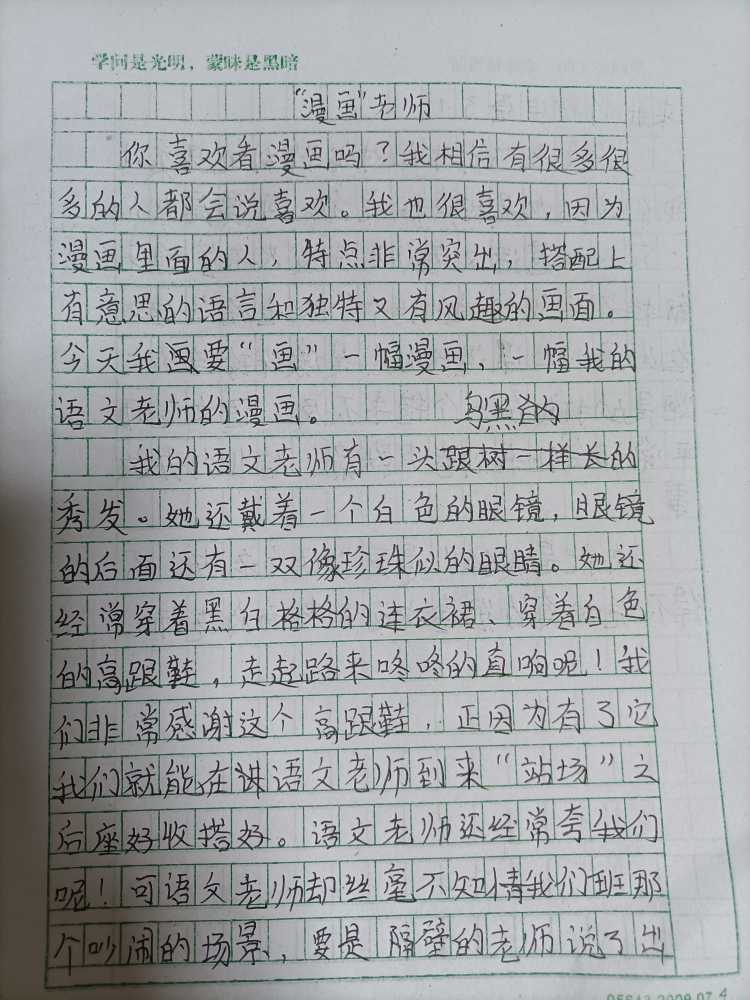 学问是光明，蒙昧是黑暗
“漫画”老师
你喜欢看漫画吗？我相信有很多很
多的人都会说喜欢。我也很喜欢，因为
漫画里面的人，特点非常突出，搭配上
有意思的语言和独特又有风趣的画面。
今天我画要“画”一幅漫画，一幅我的
语文老师的漫画。
乌黑的
我的语文老师有一头跟树一样长的
秀发。她还戴着一个白色的眼镜，眼镜
的后面还有一双像珍珠似的眼睛。她还
经常穿着黑白格格的连衣裙、穿着白色
的高跟鞋，走起路来咚咚的直响呢！我
们非常感谢这个高跟鞋，正因为有了它
我们就能在讲语文老师到来“站场”之
后座好收搭好。语文老师还经常夸我们
呢！可语文老师却丝毫不知情我们班那
个吵闹的场景，要是隔壁的老师说了出